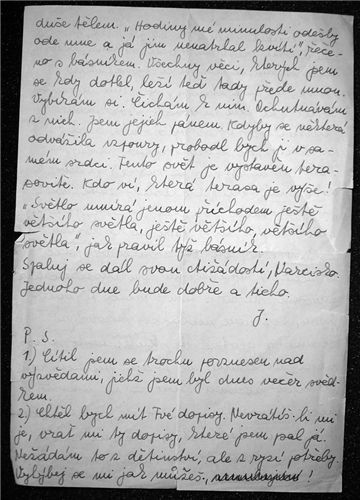 duše tělem. „Hodiny mé minulosti odešly
ode mne a já jim nenatrhal kvítí“, řeče-
no s básníkem. Všechny věci, kterých jsem
se kdy dotkl, leží teď tady přede mnou.
Vybírám si. Čichám k nim. Ochutnávám
z nich. Jsem jejich pánem. Kdyby se některá
odvážila vzpoury, probodl bych ji v sa-
mém srdci. Tento svět je vystavěn tera-
sovitě. Kdo ví, která terasa je výše!
„Světlo umírá jenom příchodem ještě
většího světla, ještě většího, většího
světla“, jak pravil týž básník.
Spaluj se dál svou ctižádostí, Narcisko.
Jednoho dne bude dobře a ticho.
J.
P. S.
1) Cítil jsem se trochu povznesen nad
vyzvědami, jichž jsem byl dnes večer svěd-
kem.
2) Chtěl bych mít Tvé dopisy. Nevrátíš-li mi
je, vrať mi ty dopisy, které jsem psal já.
Nežádám to z dětinství, ale z ryzí potřeby.
Vyhýbej se mi jak můžeš, !